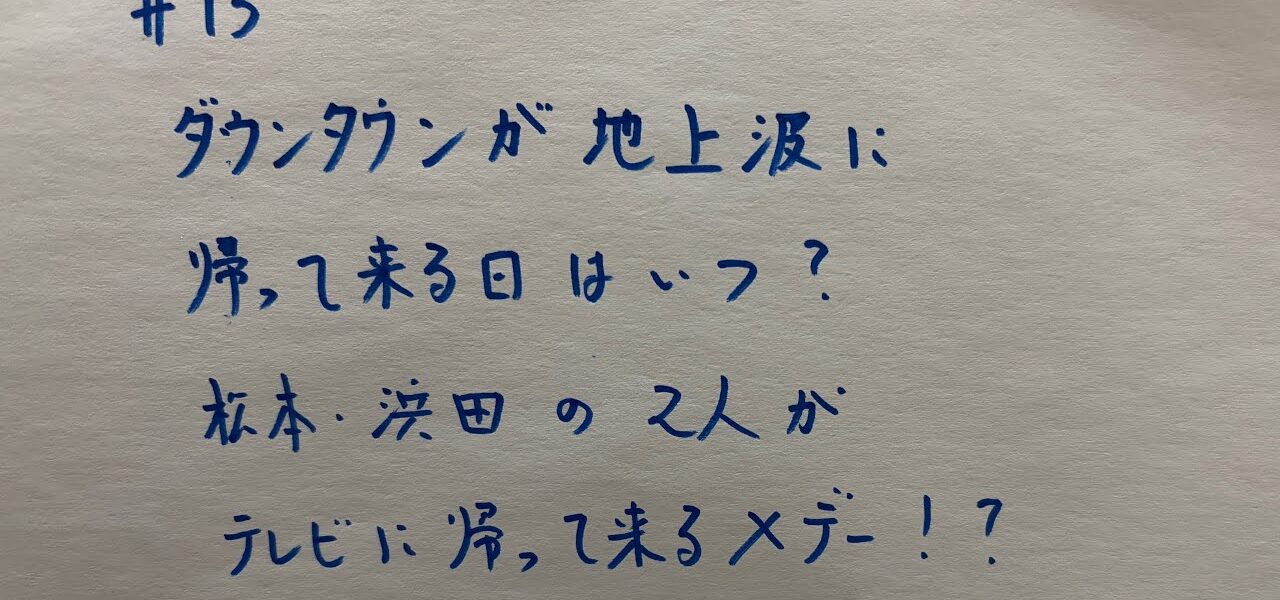 #15
ダウンタウンが地上波に
帰って来る日はいつ?
松本・浜田の2人が
テレビに帰って来るXデー!?